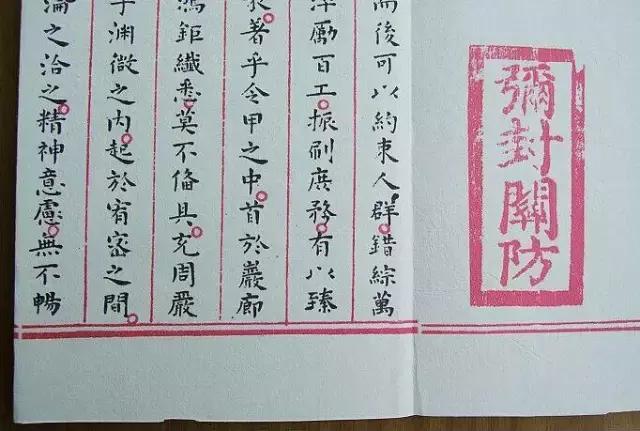 彌封關防
而後可以約束人群錯綜萬
勵百工振刷庶務有以臻
著乎令甲之中首於巖廊
鴻鉅纖悉莫不俻具充周嚴
乎淵微之内起於宥密之間
淪之洽之精神意慮無不暢